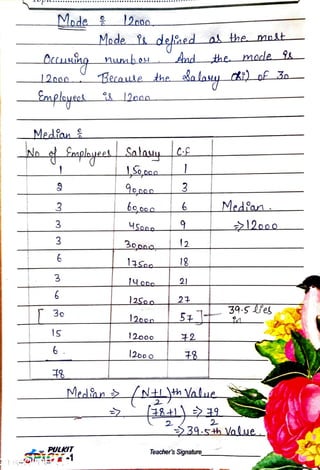 Mode : 12000.
Mode is defined as the most
Occuring number. And the mode is
12000. Because the Salary of 30
Employees is 12000
Median :
No of Employees Salary C.F
1 1,50,000 1
2 90,000 3
3 60,000 6 Median.
3 45000 9 ⇒ 12000
3 30,000 12
6 17500 18
3 14000 21
6 12500 27
30 12000 57 39.5 lies in
15 12000 72
6. 12000 78
78
Median ⇒ (N+1/2)th Value
⇒ (78+1/2) ⇒ 79/2
⇒ 39.5th Value.
PULKIT
Teacher's Signature
-1